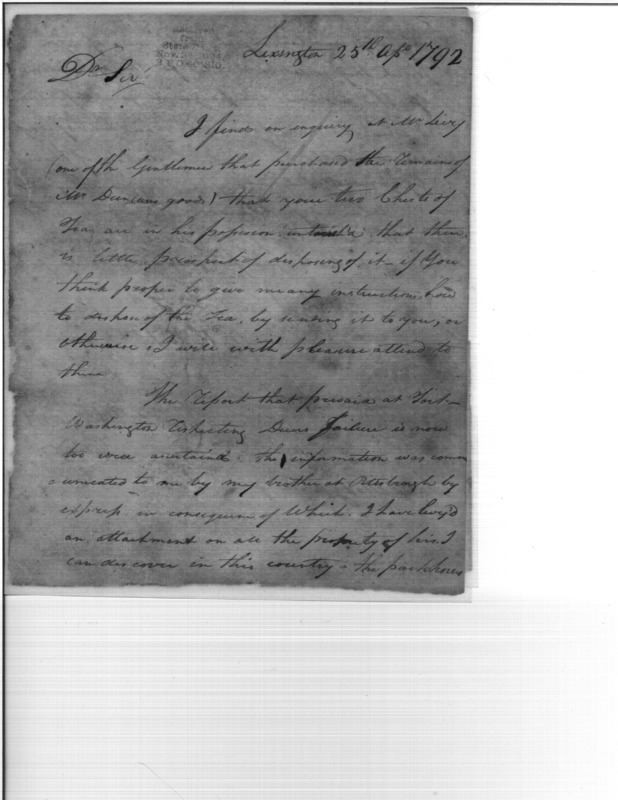 from
Lexington 25th Apl 1792
Dr Sir
I finds on enquiry at Mr Levy
(one of th Gentlemen that purchased the remains of
Mr Duncans goods) that your two Chests of
Tea are in his possession that there
is little prospect of disposing of it - if You
think proper to give me any instructions how
to dispose of the Tea, by sending it to you, or
otherwise I will with pleasure attend to
them
The report that prevaild at Fort-
Washington respecting Duers Failure is now
too well ascertaind. The information was comm
unicated to me by my brother at Pittsburgh by
express in consequence of Which. I have levy'd
an attachment on all the property of his I
can discover in this country - the packhorses